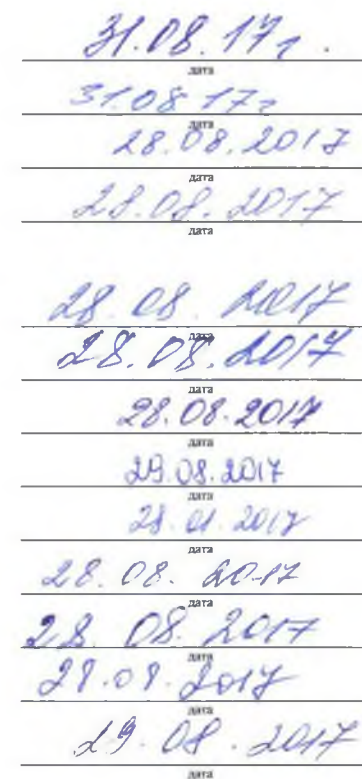 31.08.17г.
дата
31.08.17г
дата
28.08.2017
дата
28.08.2017
дата
28.08.2017
дата
28.08.2017
дата
28.08.2017
дата
29.08.2017
дата
28.08.2017
дата
28.08.2017
дата
28.08.2017
дата
28.08.2017
дата
29.08.2017
дата